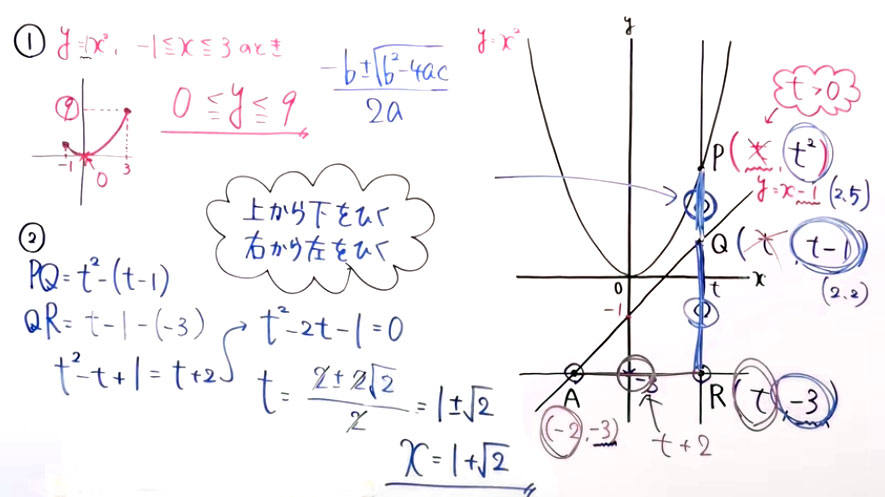 ① y=1x², -1≦x≦3
9
-1 0 3
0≦y≦9
-b±√b²-4ac
2a
上から下をひく
右から左をひく
②
PQ=t²-(t-1)
QR=t-1-(-3)
t²-t+1=t+2
t²-2t-1=0
t=2±2√2/2=1±√2
x=1+√2
y=x²
y
t>0
P(t, t²)
y=x-1 (2.5)
Q(t, t-1)
(2.2)
0 t x
-1
-3
A R(t, -3)
(-2, -3) t+2